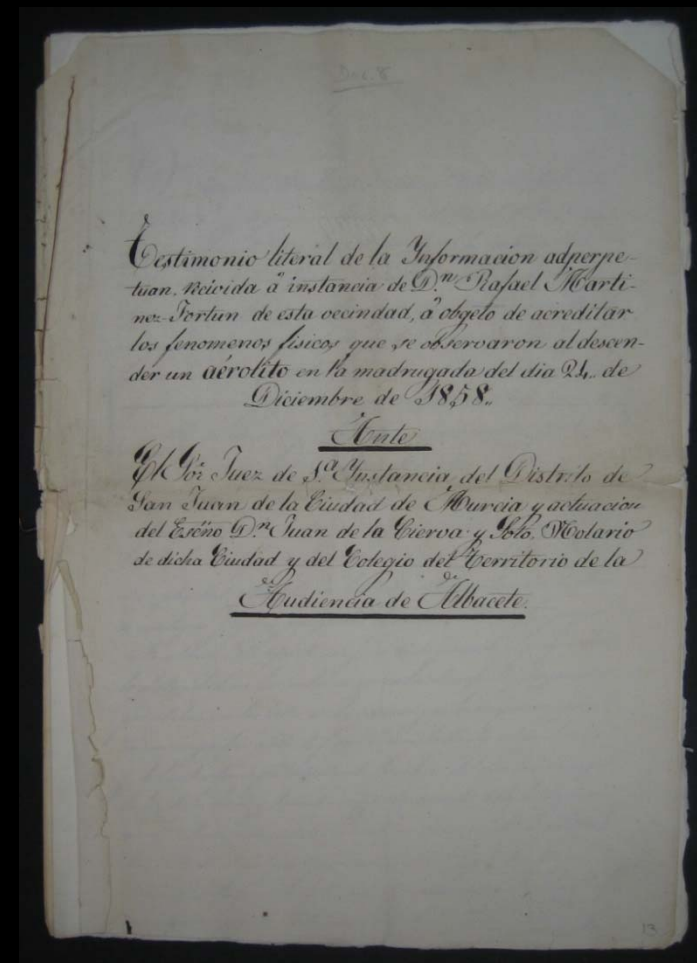 Doc. 8
Testimonio literal de la Ynformacion adperpe-
tuan. Recivida á instancia de D.n Rafael Marti-
nez-Fortun de esta vecindad, á obgeto de acreditar
los fenomenos fisicos que se observaron al descen-
der un aérolito en la madrugada del dia 24. de
Diciembre de 1858.
Ante
El Sór Juez de 1ª Ynstancia del Distrito de
San Juan de la Ciudad de Murcia y actuacion
del Escñō D.n Juan de la Cierva y Soto, Notario
de dicha Ciudad y del Colegio del Territorio de la
Audiencia de Albacete.
13